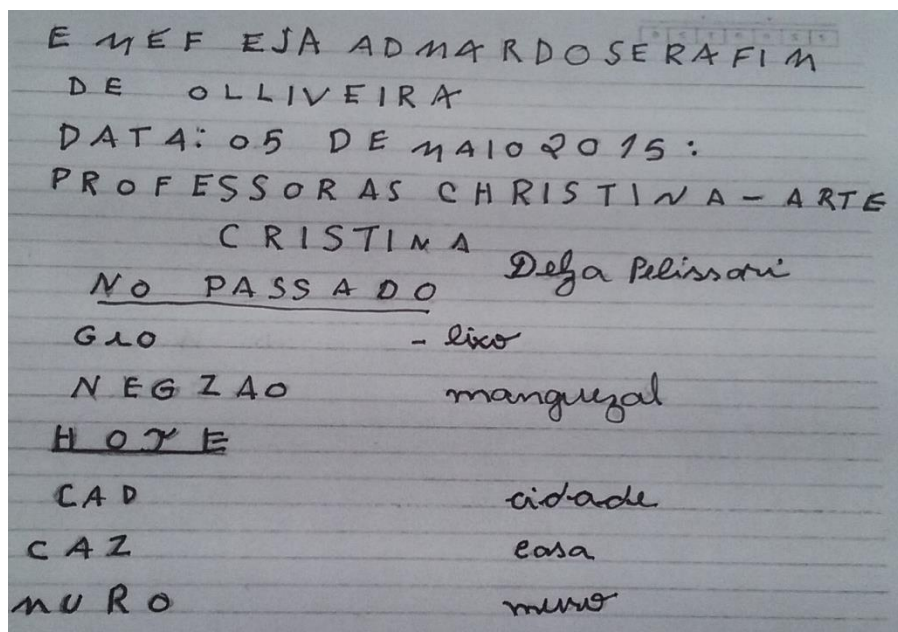 EMEF EJA ADMARDOSERAFIM
DE OLLIVEIRA
DATA: 05 DE MAIO 2015:
PROFESSORAS CHRISTINA - ARTE
CRISTINA
Delza Pelissari
NO PASSADO
GIO - lixo
NEGZAO manguezal
HOJE
CAD cidade
CAZ casa
MURO muro